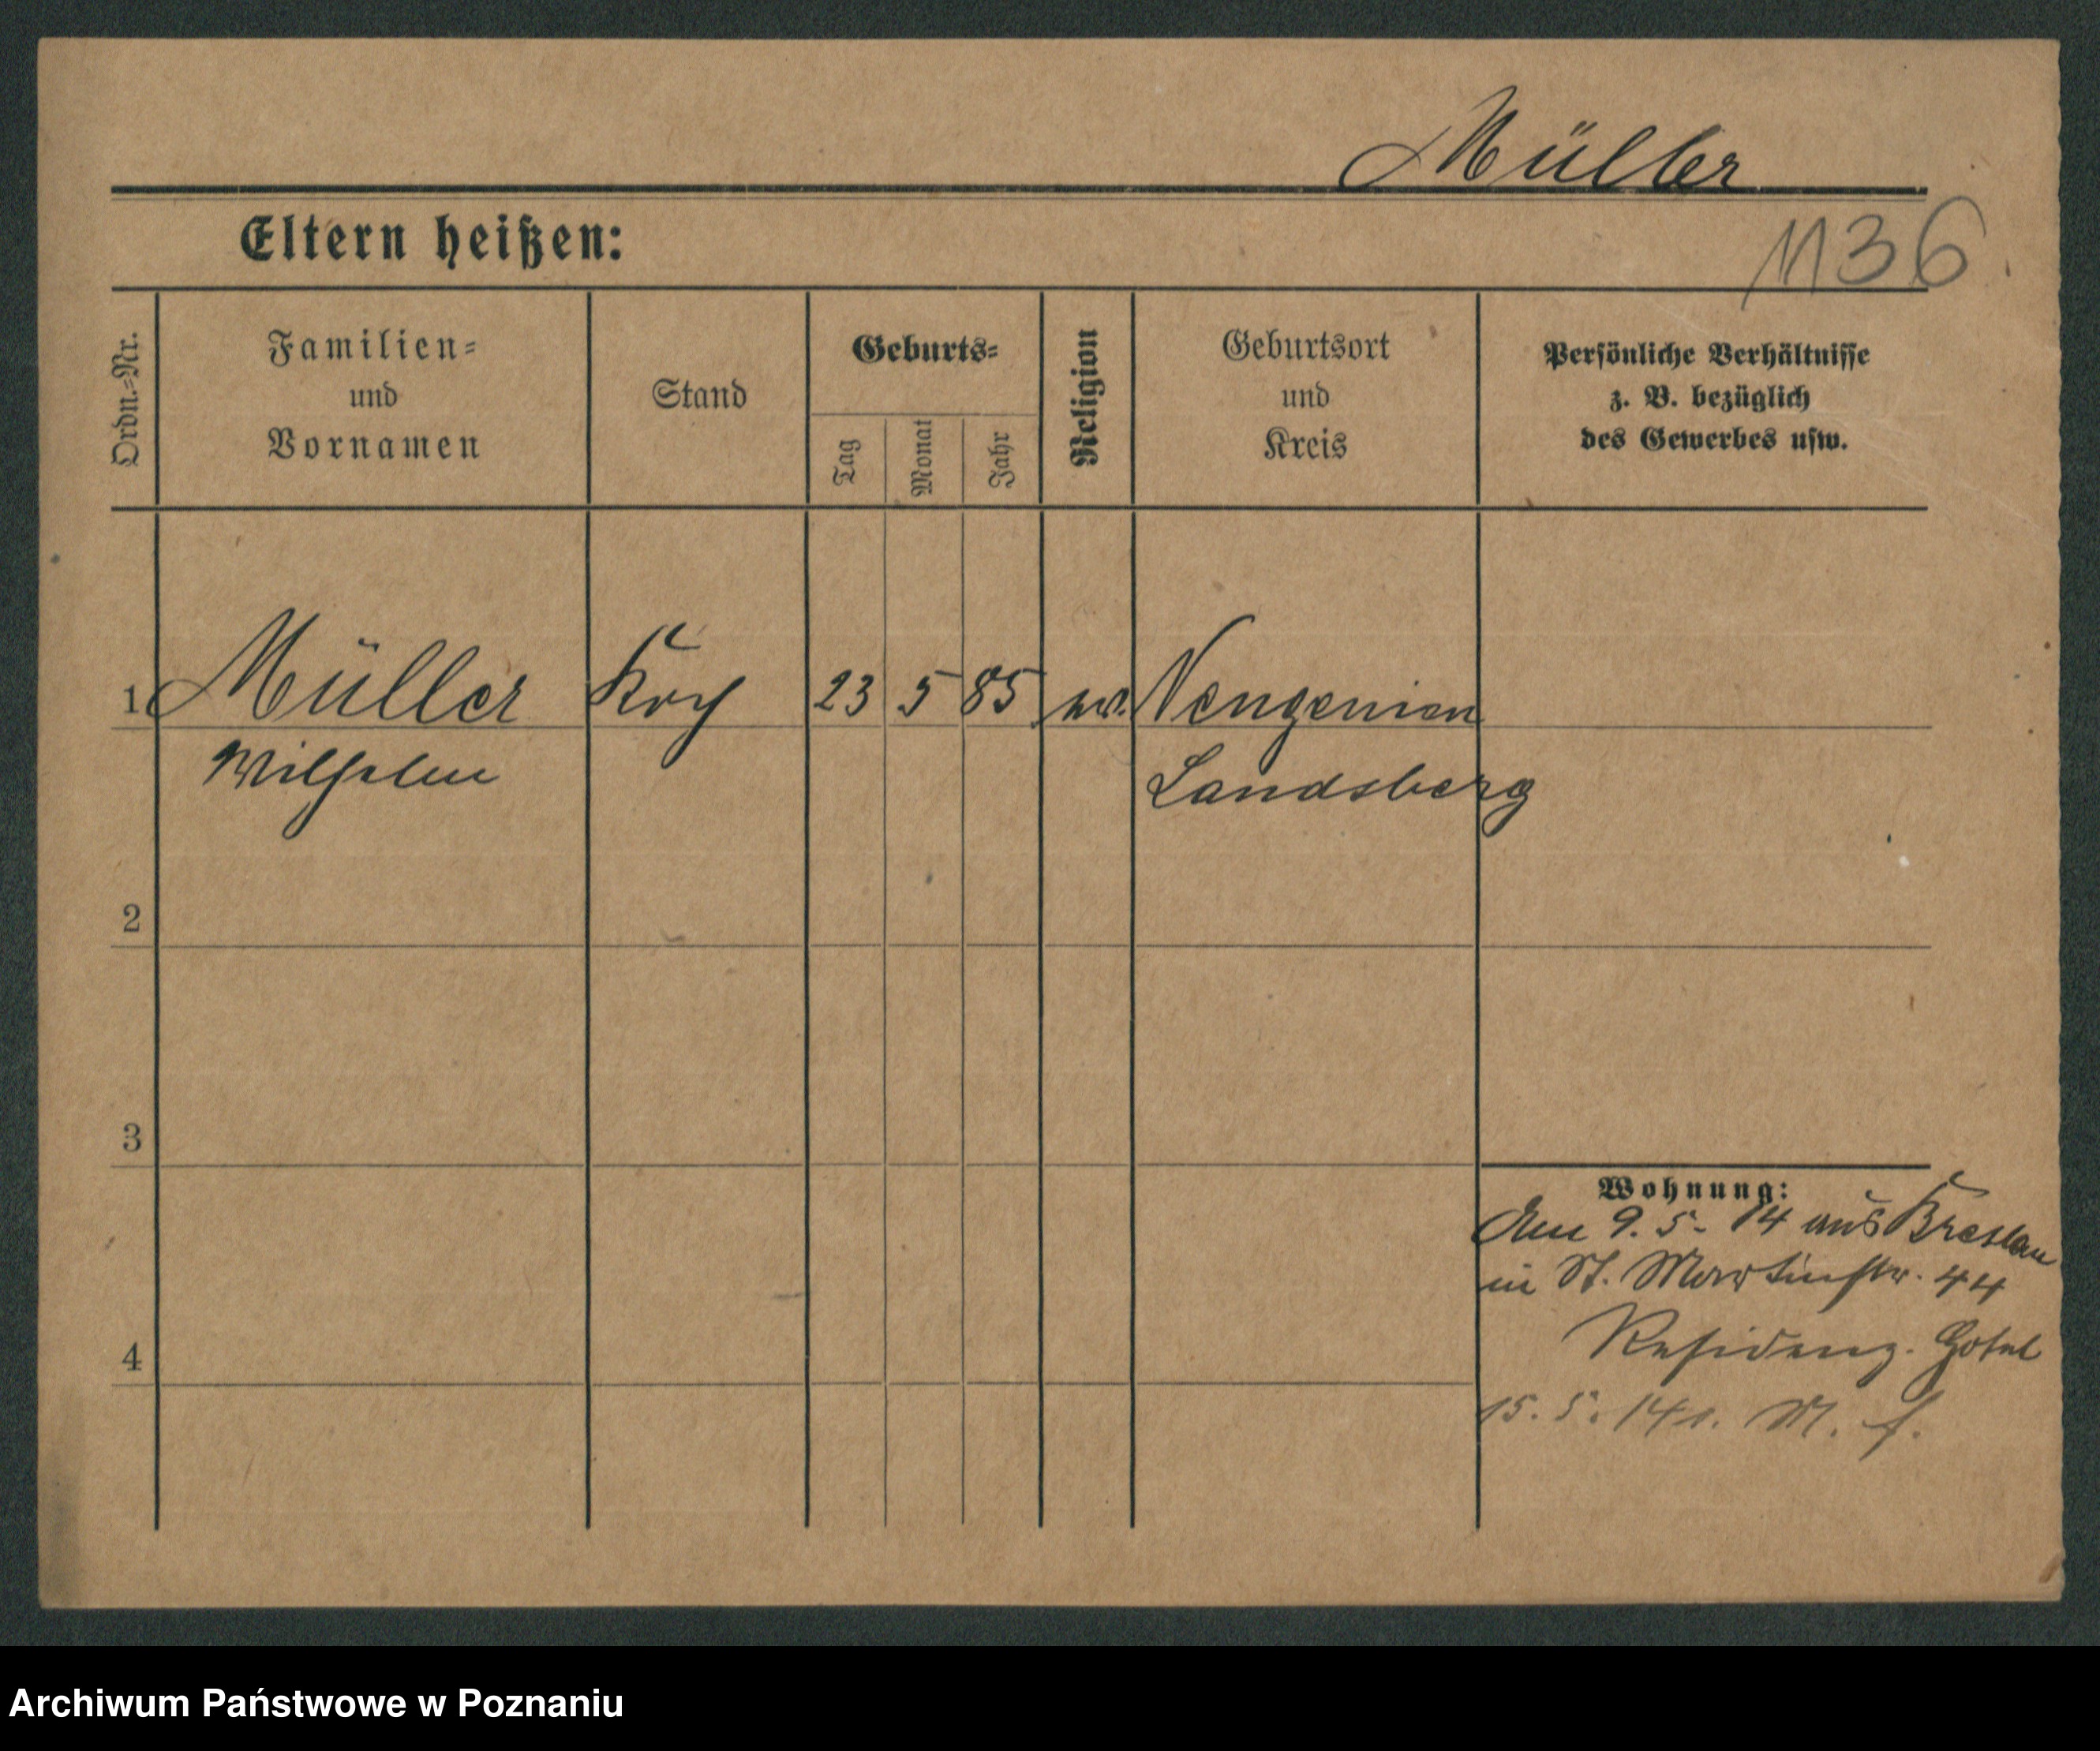 Müller
Eltern heißen:
1136
Ordn.-Nr.
Familien-
und
Vornamen
Stand
Geburts-
Tag
Monat
Jahr
Religion
Geburtsort
und
Kreis
Persönliche Verhältnisse
z. B. bezüglich
des Gewerbes usw.
1 Müller Koch 23 5 85 ev.
Wilhelm Landsberg
2
3
4
Wohnung:
Am 9. 5. 14 aus Breslau
in St. Martinstr. 44
Residenz. Hotel
15. 5. 14 M.
Archiwum Państwowe w Poznaniu